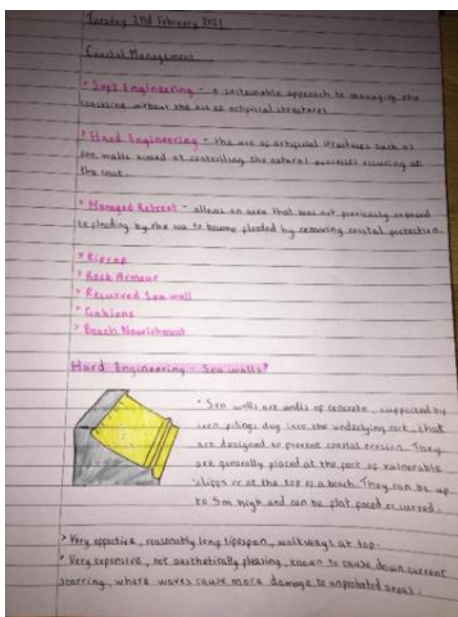 Tuesday 2nd February 2021
Coastal Management
> Soft Engineering - a sustainable approach to managing the
coastline without the use of artificial structures
> Hard Engineering - the use of artificial structures such as
sea walls aimed at controlling the natural processes occuring at
the coast.
> Managed Retreat - allows an area that was not previously exposed
to flooding by the sea to become flooded by removing coastal protection.
> Riprap
> Rock Armour
> Recurved Sea wall
> Gabions
> Beach Nourishment
Hard Engineering - Sea walls?
> Sea walls are walls of concrete, supported by
iron pilings dug into the underlying rock, that
are designed to prevent coastal erosion. They
are generally placed at the foot of vulnerable
cliffs or at the top of a beach. They can be up
to 5m high and can be flat faced or curved.
> Very effective, reasonably long lifespan, walkways at top.
> Very expensive, not aesthetically pleasing, known to cause down current
scarring, where waves cause more damage to unprotected areas.